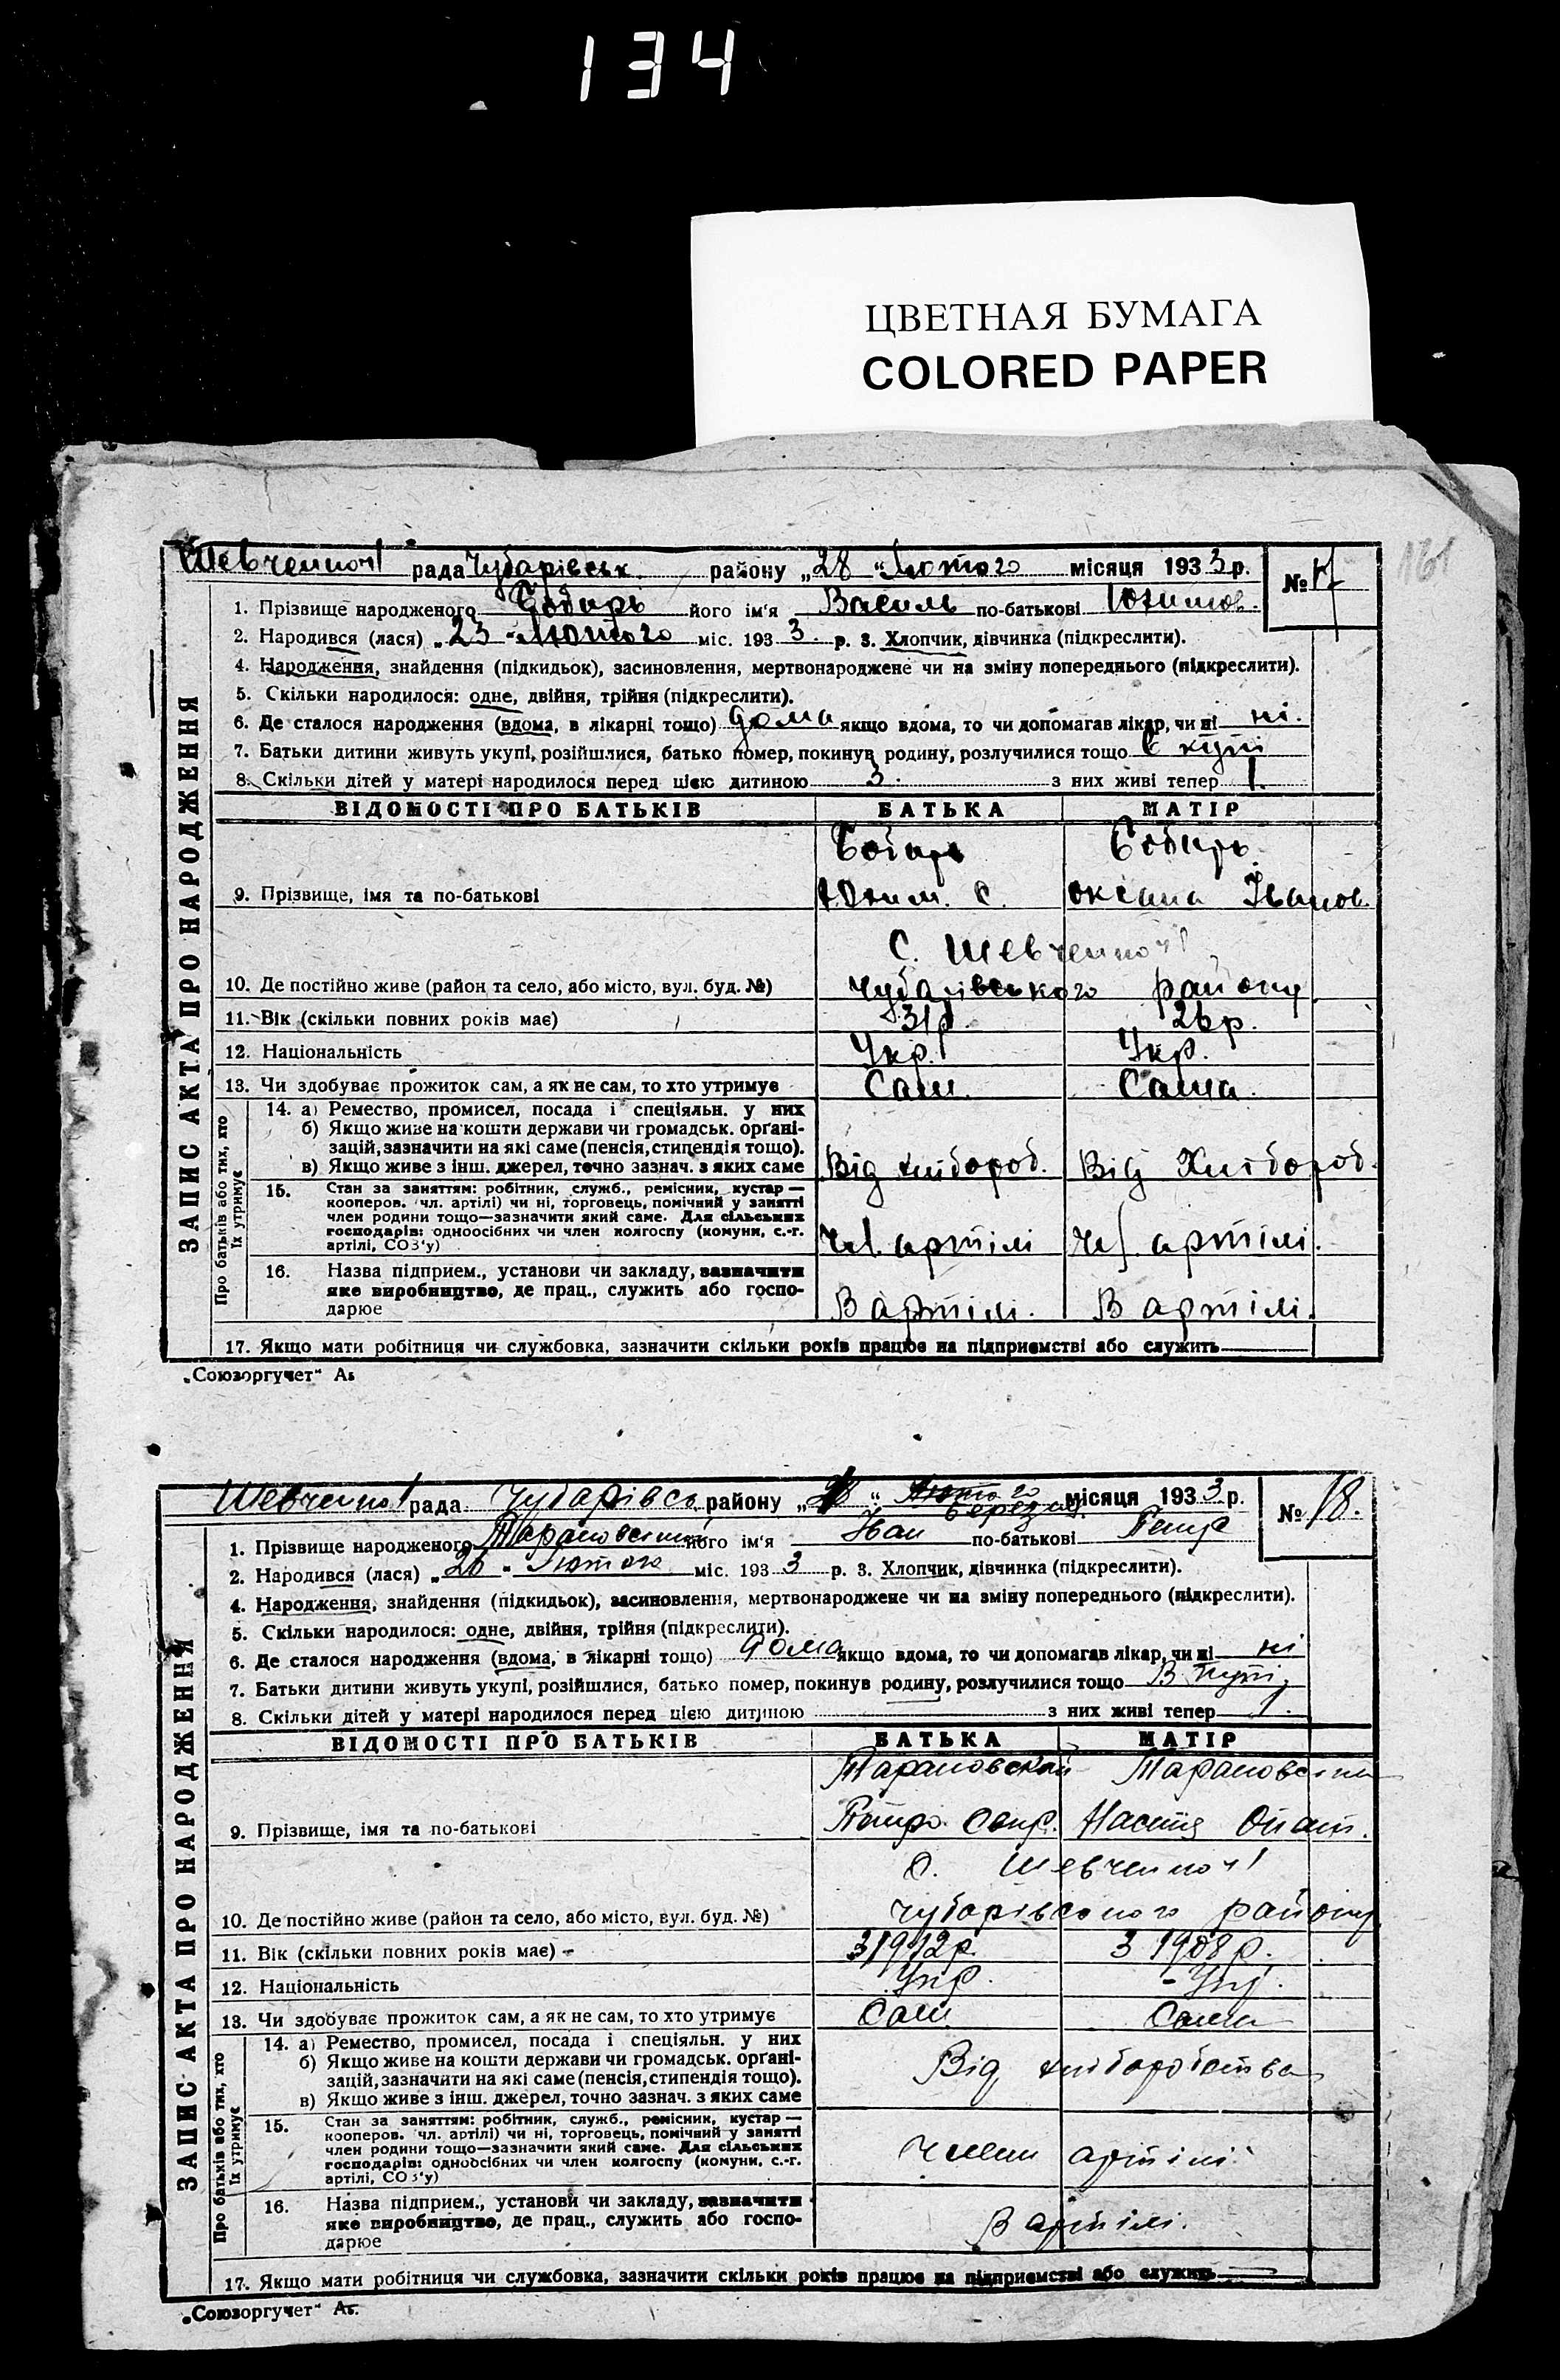 134
ЦВЕТНАЯ БУМАГА
COLORED PAPER
161
рада Чубарівськ. району „28 “ Лютого місяця 1933 р.
№ 17
1. Прізвище народженого його ім'я Василь по-батькові Юхимов.
2. Народився (лася) „23 „ Лютого міс. 1933. р. 3. Хлопчик, дівчинка (підкреслити).
4. Народження, знайдення (підкидьок), засиновлення, мертвонароджене чи на зміну попереднього (підкреслити).
5. Скільки народилося: одне, двійня, трійня (підкреслити).
6. Де сталося народження (вдома, в лікарні тощо) дома якщо вдома, то чи допомагав лікар, чи ні ні.
7. Батьки дитини живуть укупі, розійшлися, батько помер, покинув родину, розлучилися тощо
8. Скільки дітей у матері народилося перед цією дитиною 3. з них живі тепер 1.
ЗАПИС АКТА ПРО НАРОДЖЕННЯ
ВІДОМОСТІ ПРО БАТЬКІВ БАТЬКА МАТІР
9. Прізвище, імя та по-батькові Юхим. С. Оксана Іванов.
С. Шевченко
10. Де постійно живе (район та село, або місто, вул. буд. №) Чубарівського району
11. Вік (скільки повних років має) 31р. 26р.
12. Національність Укр. Укр.
13. Чи здобуває прожиток сам, а як не сам, то хто утримує Сам. Сама.
Про батьків або тих, хто їх утримує
14. а) Ремество, промисел, посада і спеціяльн. у них
б) Якщо живе на кошти держави чи громадськ. орґані-
зацій, зазначити на які саме (пенсія, стипендія тощо).
в) Якщо живе з інш. джерел, точно зазнач. з яких саме Від хлібороб. Від Хлібороб.
15. Стан за заняттям: робітник, служб., ремісник, кустар —
кооперов. чл. артілі) чи ні, торговець, помічний у занятті
член родини тощо—зазначити який саме. Для сільських
господарів: одноосібних чи член колгоспу (комуни, с.-г.
артілі, СОЗ'у) Чл. артілі Чл. артілі.
16. Назва підприєм., установи чи закладу, зазначити
яке виробництво, де прац., служить або госпо-
дарює В артілі. В артілі.
17. Якщо мати робітниця чи службовка, зазначити скільки років працює на підприємстві або служить
„Союзоргучет“
рада Чубарівськ району „ “ Березня місяця 1933 р.
№ 18.
1. Прізвище народженого його ім'я Іван по-батькові Петр
2. Народився (лася) „26 „ міс. 1933 р. 3. Хлопчик, дівчинка (підкреслити).
4. Народження, знайдення (підкидьок), засиновлення, мертвонароджене чи на зміну попереднього (підкреслити).
5. Скільки народилося: одне, двійня, трійня (підкреслити).
6. Де сталося народження (вдома, в лікарні тощо) дома якщо вдома, то чи допомагав лікар, чи ні ні
7. Батьки дитини живуть укупі, розійшлися, батько помер, покинув родину, розлучилися тощо В купі
8. Скільки дітей у матері народилося перед цією дитиною з них живі тепер 1.
ЗАПИС АКТА ПРО НАРОДЖЕННЯ
ВІДОМОСТІ ПРО БАТЬКІВ БАТЬКА МАТІР
Тарановский
9. Прізвище, імя та по-батькові Петро Настя
С.
10. Де постійно живе (район та село, або місто, вул. буд. №) Чубарівського району
11. Вік (скільки повних років має) – З 1912р. З 1908р.
12. Національність Укр. Укр.
13. Чи здобуває прожиток сам, а як не сам, то хто утримує Сам Сама
Про батьків або тих, хто їх утримує
14. а) Ремество, промисел, посада і спеціяльн. у них
б) Якщо живе на кошти держави чи громадськ. орґані-
зацій, зазначити на які саме (пенсія, стипендія тощо). Від хліборобства
в) Якщо живе з інш. джерел, точно зазнач. з яких саме
15. Стан за заняттям: робітник, служб., ремісник, кустар —
кооперов. чл. артілі) чи ні, торговець, помічний у занятті
член родини тощо—зазначити який саме. Для сільських
господарів: одноосібних чи член колгоспу (комуни, с.-г.
артілі, СОЗ'у) Члени артілі
16. Назва підприєм., установи чи закладу, зазначити
яке виробництво, де прац., служить або госпо-
дарює В артілі.
17. Якщо мати робітниця чи службовка, зазначити скільки років працює на підприємстві або служить
„Союзоргучет“